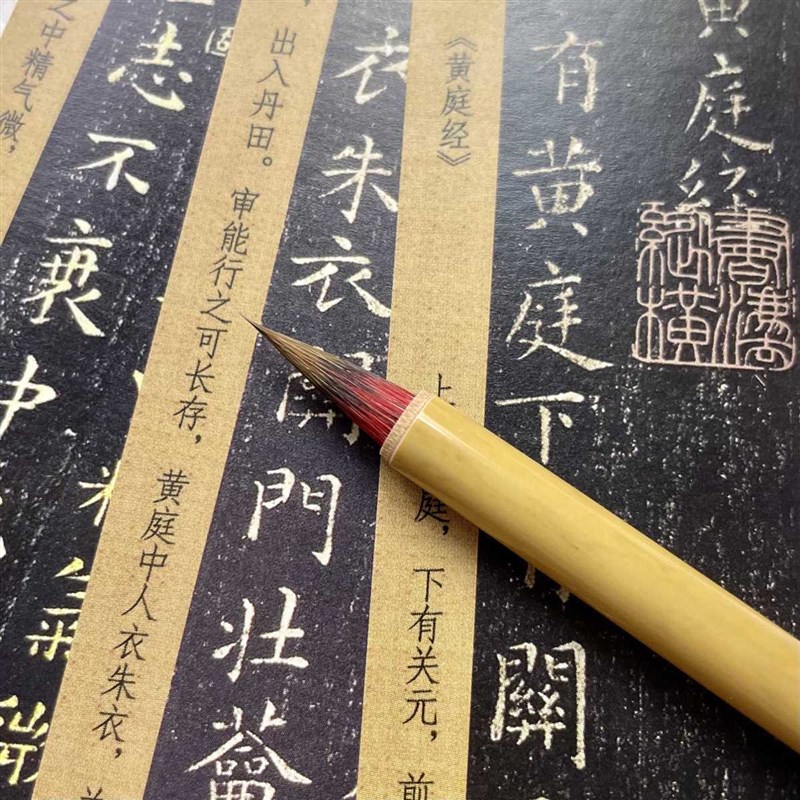 黃庭經
有黃庭下關
《黄庭经》
庭，下有关元，前
衣朱衣關門壯蘥
，出入丹田。审能行之可长存，黄庭中人衣朱衣，
固
氣
志不衰中
之中精气微，